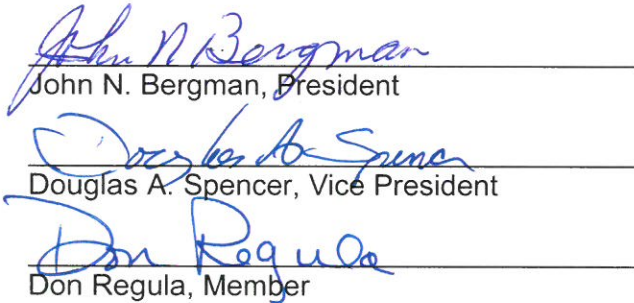 John N Bergman
John N. Bergman, President
Douglas A Spencer
Douglas A. Spencer, Vice President
Don Regula
Don Regula, Member